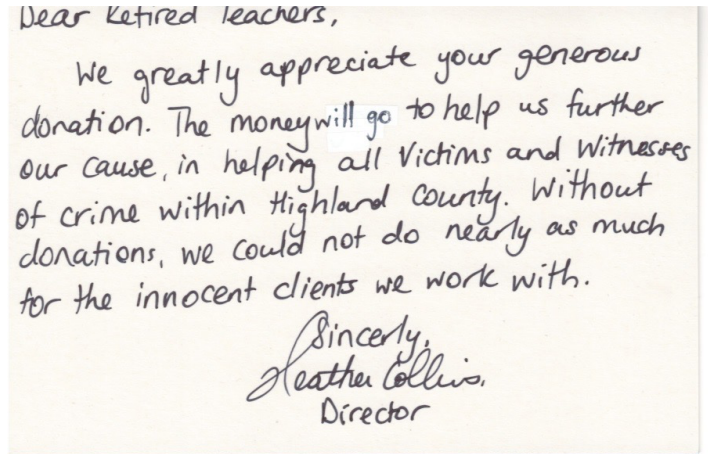 Dear Retired Teachers,
We greatly appreciate your generous
donation. The money will go to help us further
our cause, in helping all Victims and Witnesses
of crime within Highland County. Without
donations, we could not do nearly as much
for the innocent clients we work with.
Sincerly,
Heather Collins.
Director